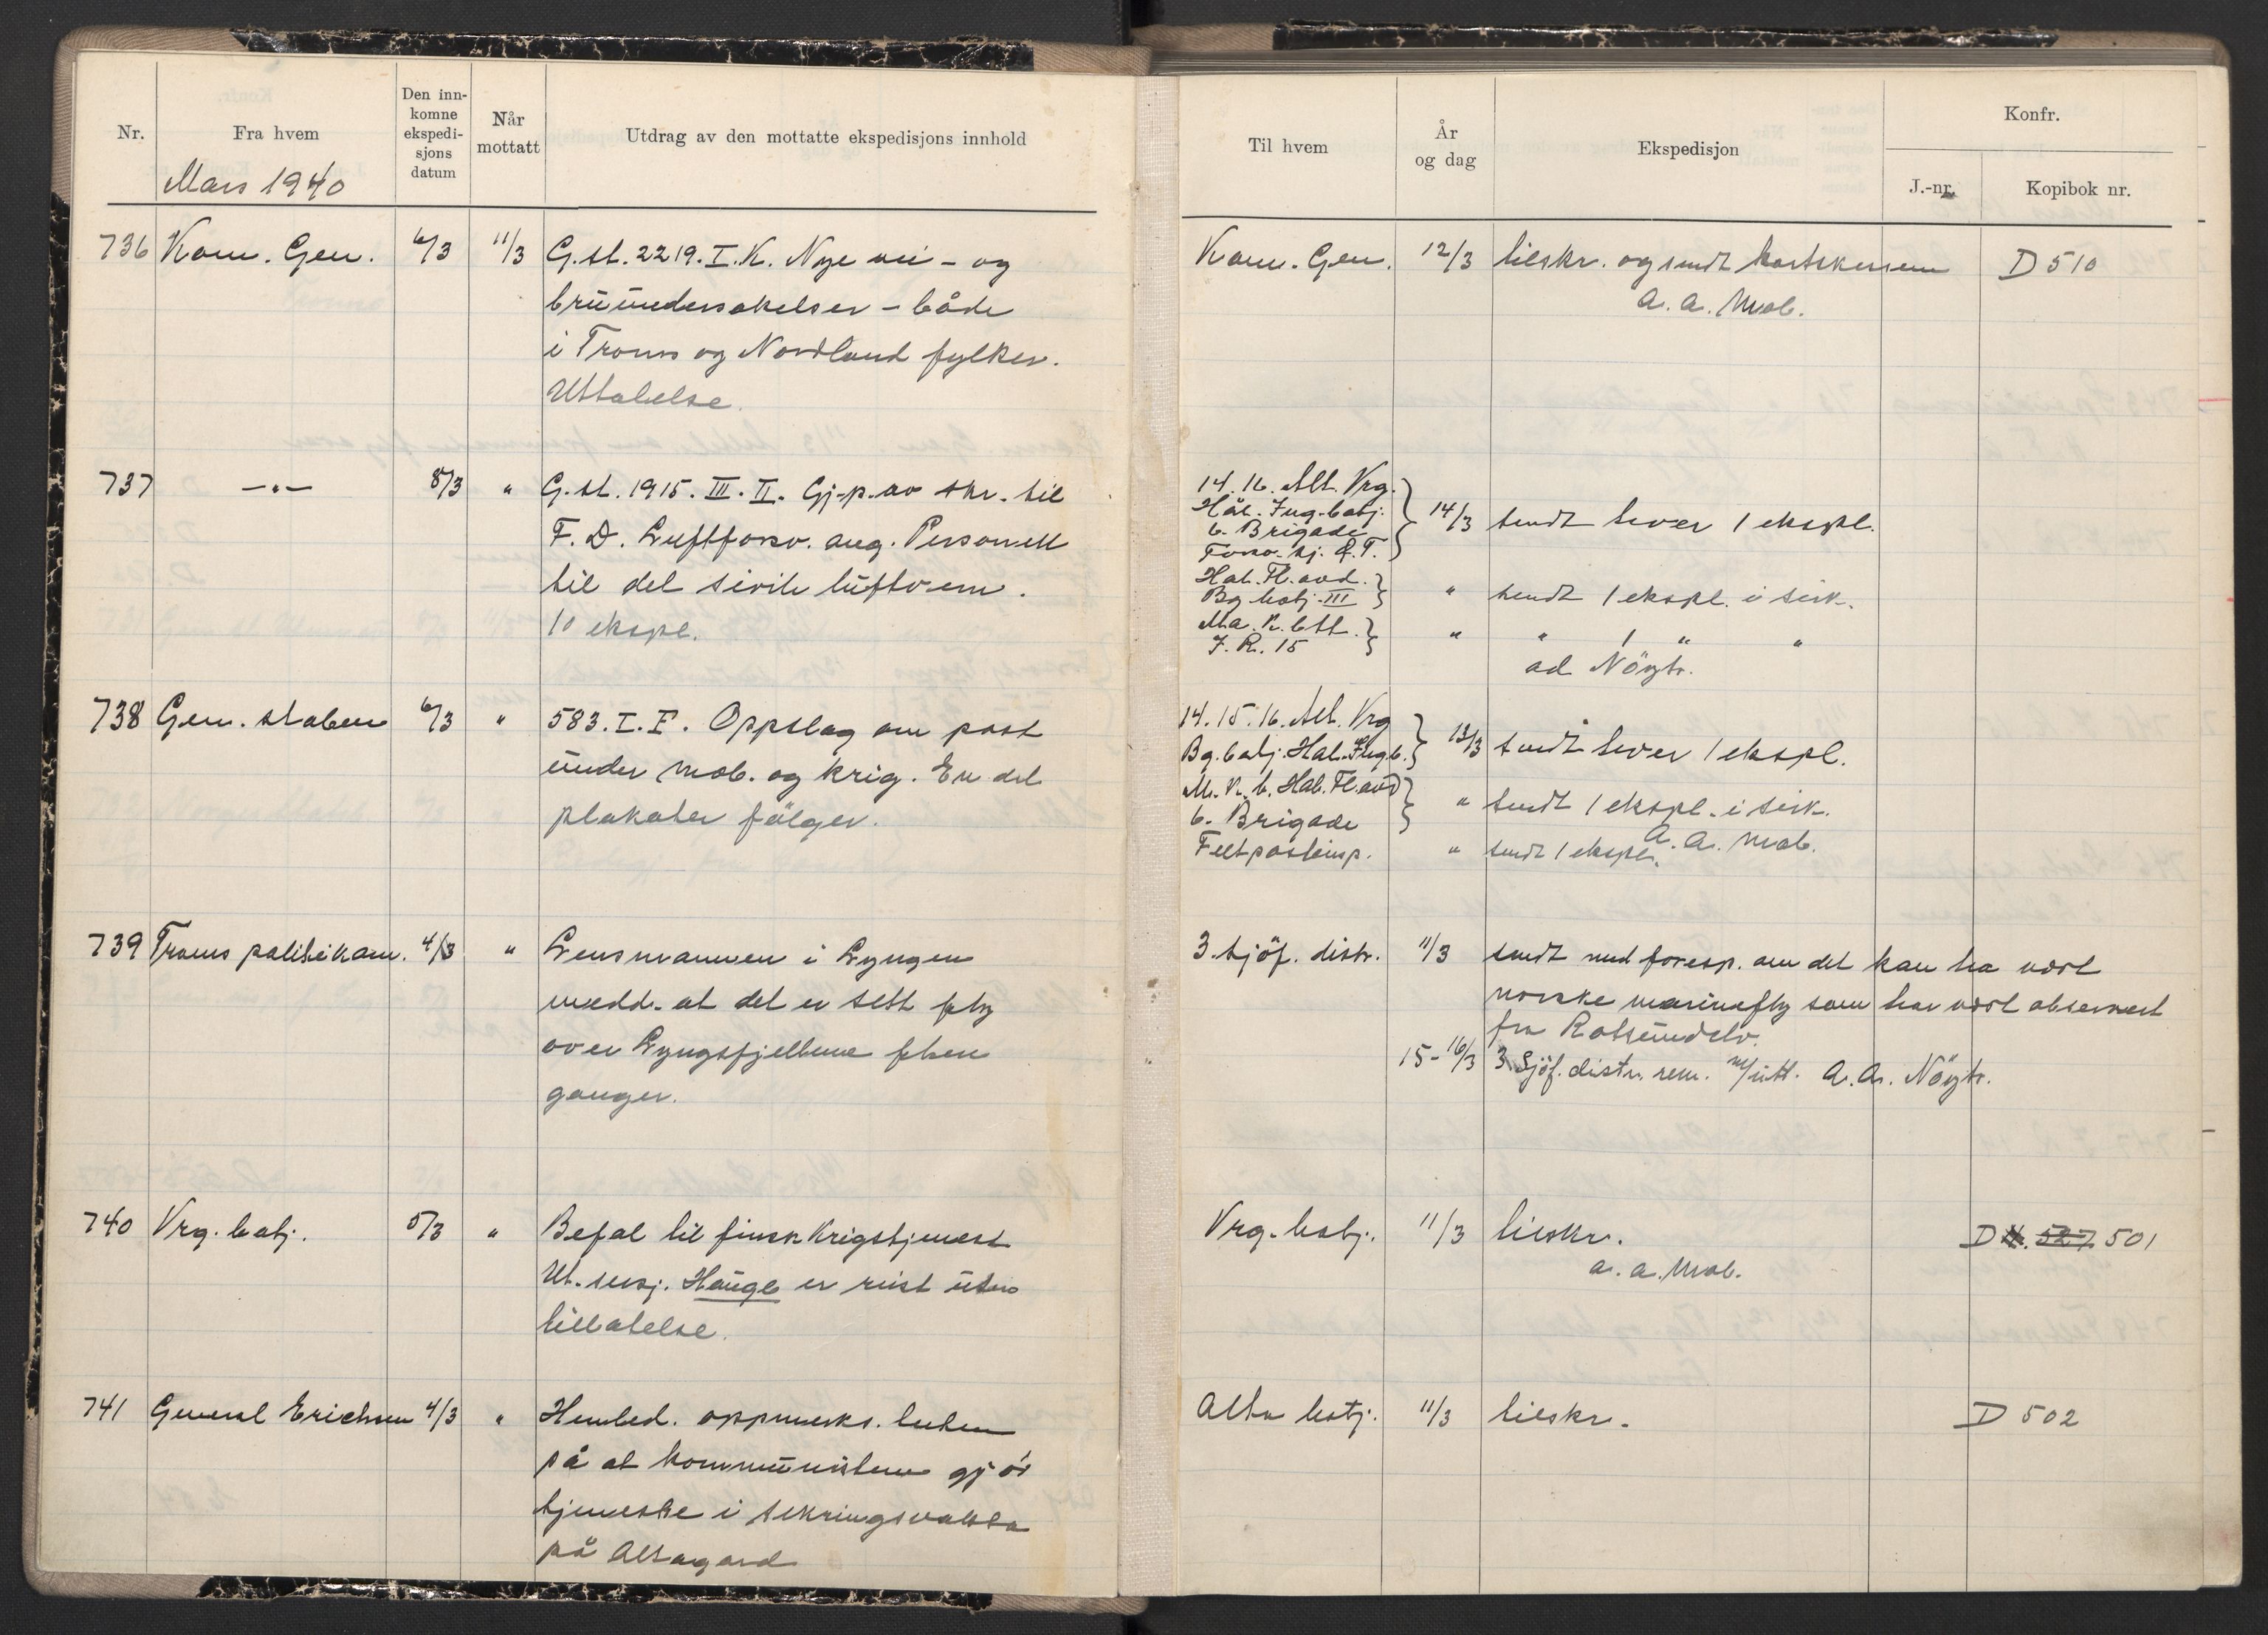 Nr.
Fra hvem
Den inn-
komne
ekspedi-
sjons
datum
Når
mottatt
Utdrag av den mottatte ekspedisjons innhold
Mars 1940
736 Kom. Gen. 6/3 11/3 G.st. 2219. I. K. Nye vei - og
bruundersøkelser - både
i Troms og Nordland fylker.
Uttalelse.
737 —"— 8/3 " G.st. 1915. III. II. Gj-p. av skr. til
F. D. Luftforsv. ang. Personell
til det sivile luftvern.
10 ekspl.
738 Gen. staben 6/3 " 583. I. F. Oppslag om post
under mob. og krig. En del
plakater følger.
739 Troms politikam. 4/3 " Lensmannen i Lyngen
medd. at det er sett fly
over Lyngsfjellene flere
ganger.
740 Vrg. batj. 5/3 " Befal til finsk Krigstjeneste
Ut. sersj. Hauge er reist uten
tillatelse.
741 General Erichsen 4/3 " Henled. oppmerks. heten
på at kommunistene gjør
tjeneste i sikringsvakta
på Altagard
Til hvem
År
og dag
Ekspedisjon
Konfr.
J.-nr.
Kopibok nr.
Kom. Gen. 12/3 tilskr. og sendt kartskissene D 510
A. A. Mob.
14. 16. Alt. Vrg.
Hål. Ing. batj.
6. Brigade 14/3 sendt hver 1 ekspl.
Forsv. sj. Ø. F.
Hål. Fl. avd.
Bg. batj. III " sendt 1 ekspl. i sirk.
Ma. K. btt.
I. R. 15 " " 1 " "
ad Nöytr.
14. 15. 16. Alt. Vrg
Bg. batj. Hål. Ing. b. 13/3 sendt hver 1 ekspl.
M. K. b. Hål. Fl. avd
6. Brigade " sendt 1 ekspl. i sirk.
A. A. Mob.
Feltpostinsp. " sendt 1 ekspl.
3. sjöf. distr. 11/3 sendt med foresp. om det kan ha vært
norske marinefly som har vært observert
fra Rotsundelv.
15-16/3 3 Sjöf. distr. rem. m/utt. A. A. Nöytr.
Vrg. batj. 11/3 tilskr. D N. 527 501
a. a. Mob.
Alta batj. 11/3 tilskr. D 502